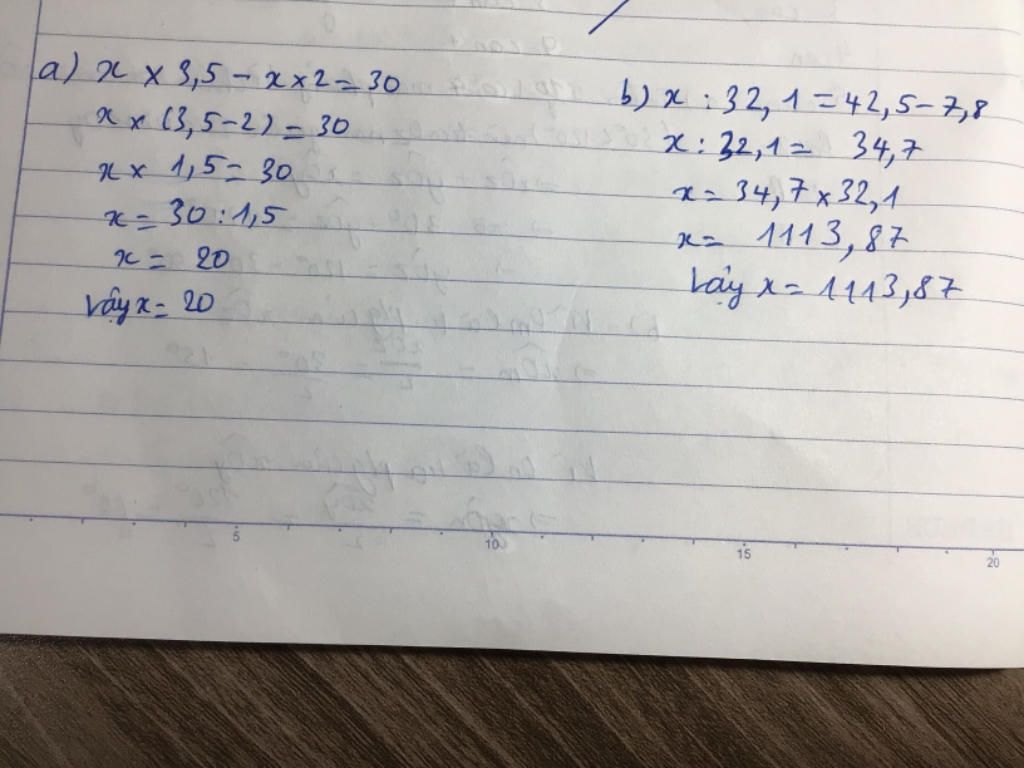 a) x × 3,5 - x × 2 = 30
x × (3,5 - 2) = 30
x × 1,5 = 30
x = 30 : 1,5
x = 20
Vậy x = 20
b) x : 32,1 = 42,5 - 7,8
x : 32,1 = 34,7
x = 34,7 × 32,1
x = 1113,87
Vậy x = 1113,87
5 10 15 20